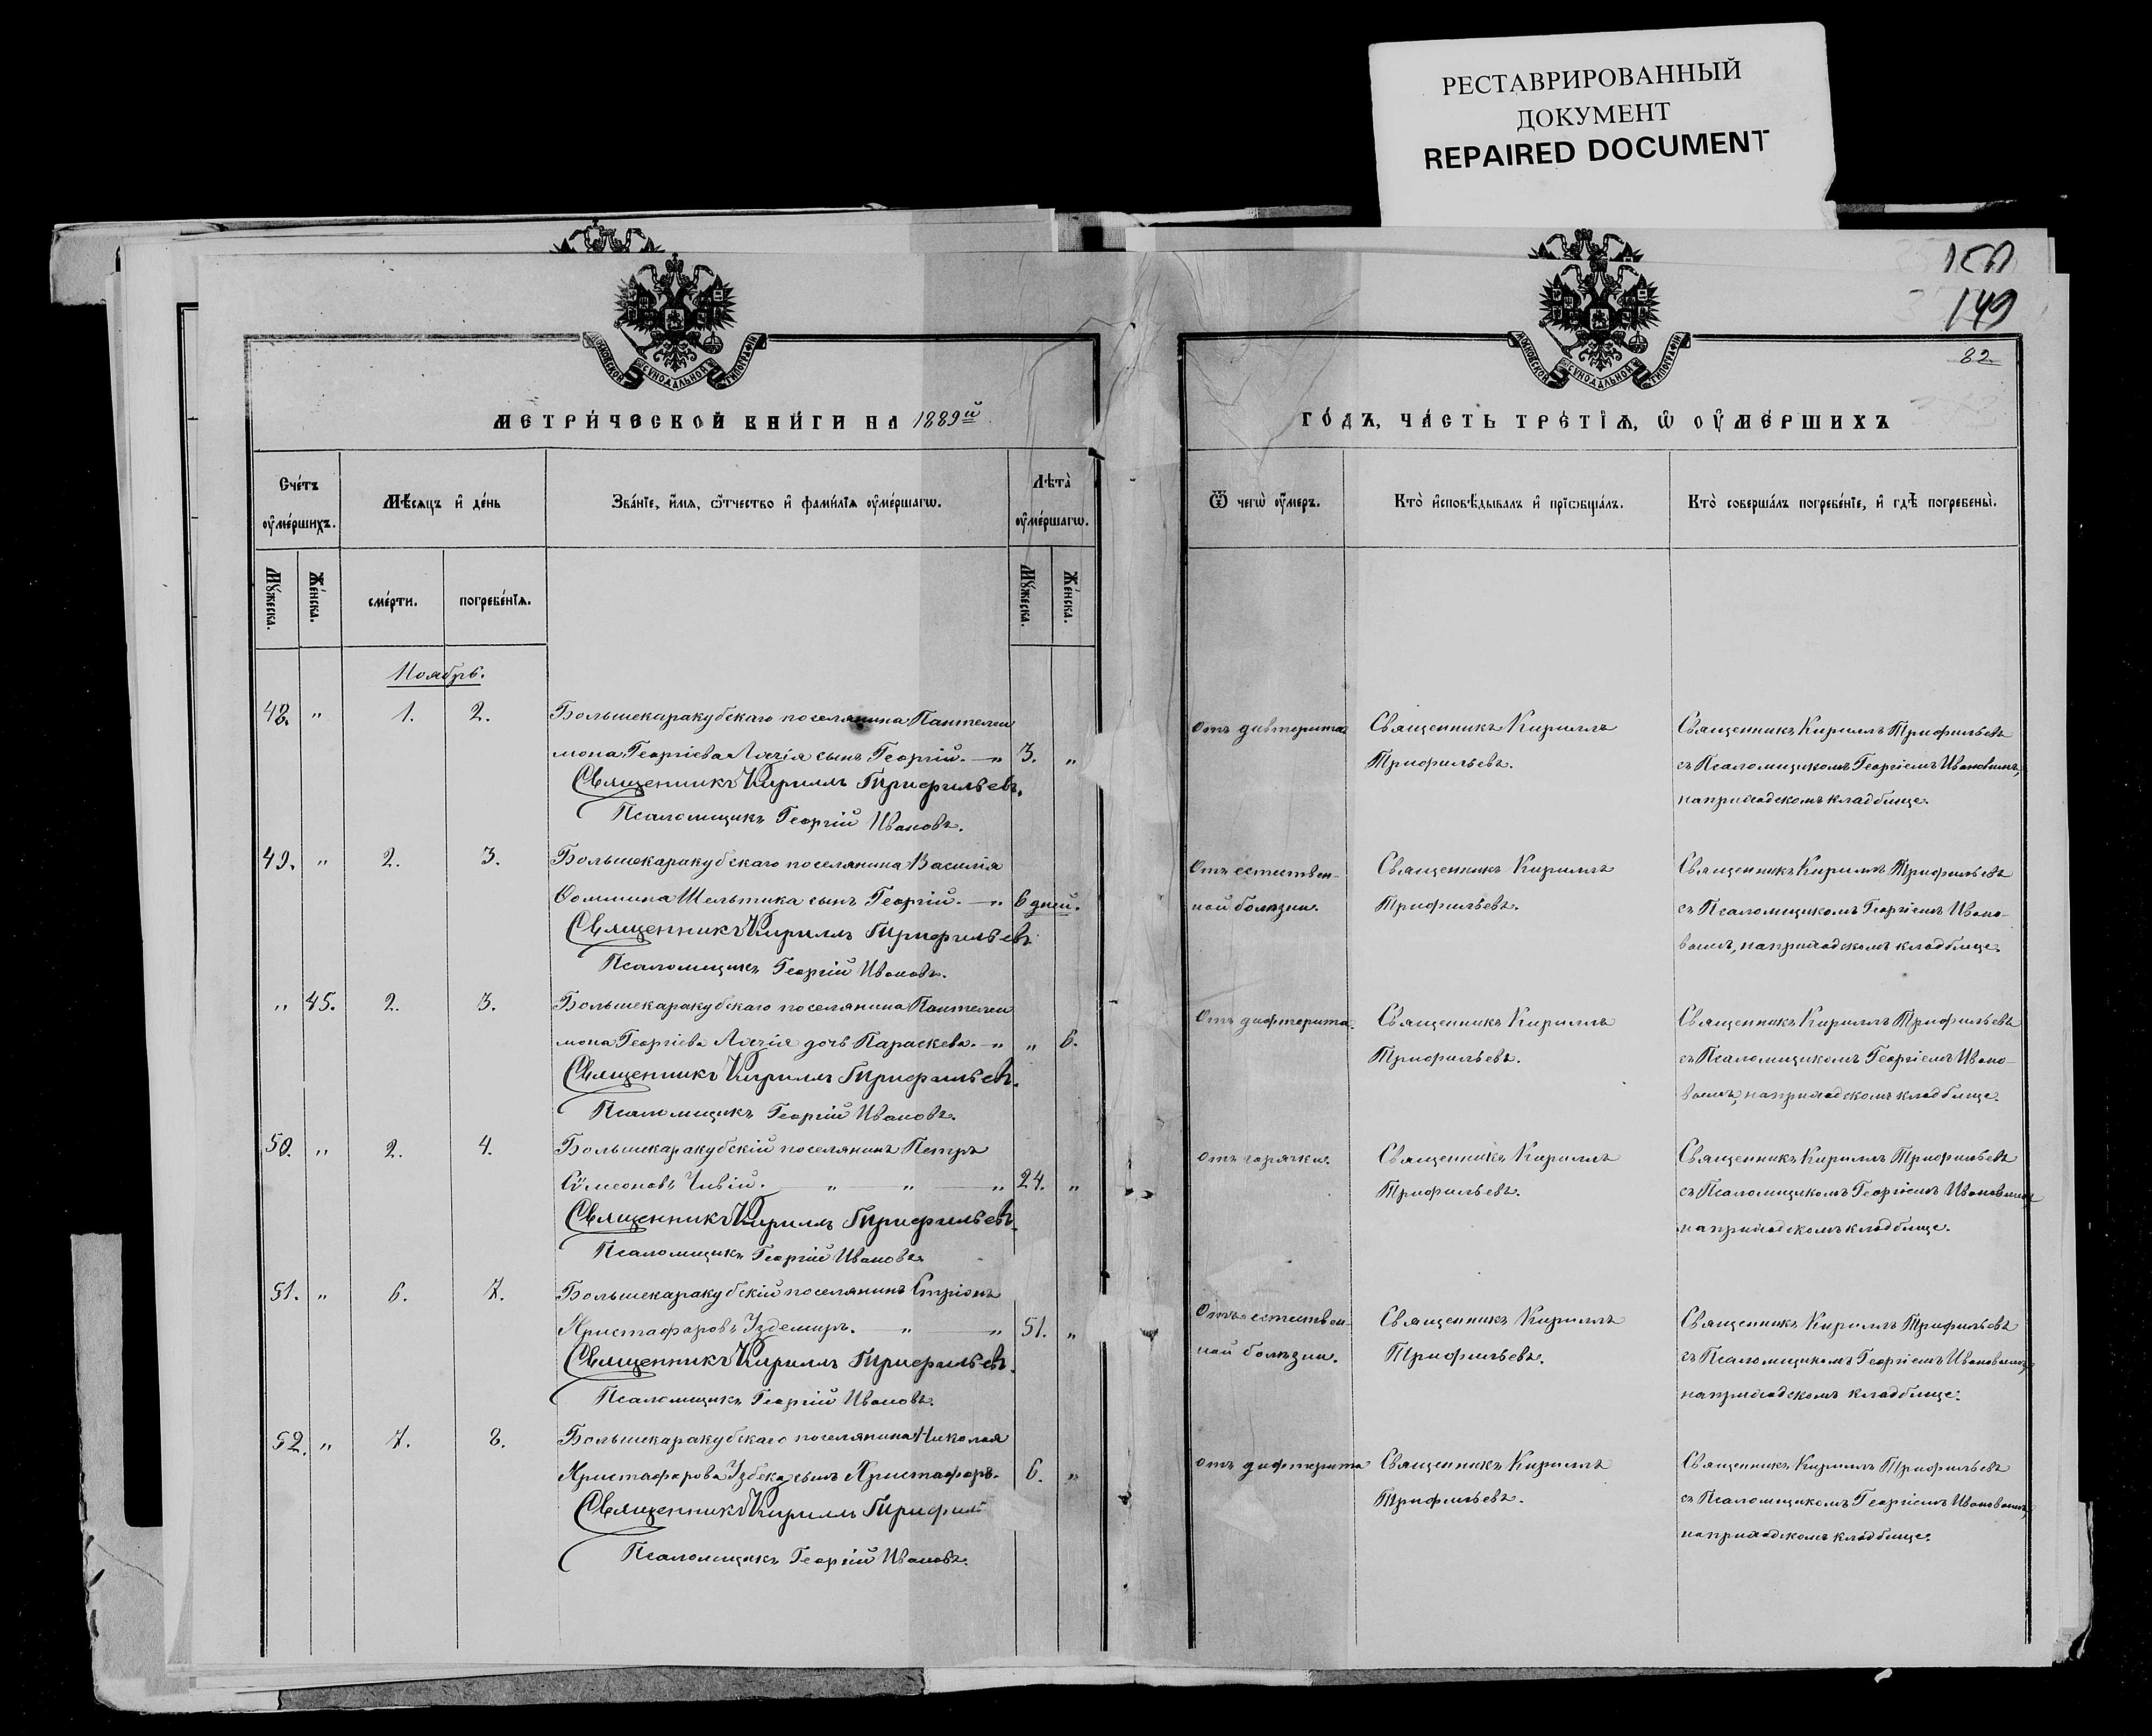 РЕСТАВРИРОВАННЫЙ
ДОКУМЕНТ
REPAIRED DOCUMENT
149
82
МОСКОВСКОЙ СѴНОДАЛЬНОЙ ТИПОГРАФІИ
МОСКОВСКОЙ СѴНОДАЛЬНОЙ ТИПОГРАФІИ
МЕТРИ́ЧЕСКОЙ КНИ́ГИ НА 1889й
ГО́ДЪ, ЧА́СТЬ ТРЕ́ТІѦ, Ѡ҆ ОУ҆МЕ́РШИХЪ
Сче́тъ оу҆ме́ршихъ.
Мѣ́сяцъ и҆ де́нь
Зва́нїе, и҆́мя, ѻ҆́тчество и҆ фами́лїя оу҆ме́ршагѡ.
Лѣ́та̀ оу҆ме́ршагѡ.
Ѿ чегѡ̀ оу҆́меръ.
Кто̀ и҆сповѣ́дывалъ и҆ прїѡбща́лъ.
Кто̀ соверша́лъ погребе́нїе, и҆ гдѣ̀ погребены̀.
Мꙋ́жеска.
Же́нска.
сме́рти.
погребе́нїѧ.
Мꙋ́жеска.
Же́нска.
Ноябрь.
48. " 1. 2. Большекаракубскаго поселянина Пантелеи
мона Георгіева сынъ Георгій. — " 3. "
Священникъ Кириллъ Трифильевъ.
Псаломщикъ Георгій Ивановъ.
Отъ дифтерита
Священникъ Кириллъ
Трифильевъ.
Священникъ Кириллъ Трифильевъ
съ Псаломщикомъ Георгіемъ Ивановымъ,
на приходскомъ кладбище.
49. " 2. 3. Большекаракубскаго поселянина Василія
Ѳомина Шельтика сынъ Георгій. — " 6 дней.
Священникъ Кириллъ Трифильевъ
Псаломщикъ Георгій Ивановъ.
Отъ естествен-
ной болѣзни.
Священникъ Кириллъ
Трифильевъ.
Священникъ Кириллъ Трифильевъ
съ Псаломщикомъ Георгіемъ Ивано-
вымъ, на приходскомъ кладбище.
" 45. 2. 3. Большекаракубскаго поселянина Пантелеи
мона Георгіева дочь Параскева. — " " 6.
Священникъ Кириллъ Трифильевъ.
Псаломщикъ Георгій Ивановъ.
Отъ дифтерита.
Священникъ Кириллъ
Трифильевъ.
Священникъ Кириллъ Трифильевъ
съ Псаломщикомъ Георгіемъ Ивано-
вымъ, на приходскомъ кладбище.
50. " 2. 4. Большекаракубскій поселянинъ Петръ
Сѵмеоновъ Чивій. — " — " — " 24. "
Священникъ Кириллъ Трифильевъ.
Псаломщикъ Георгій Ивановъ.
Отъ горячки.
Священникъ Кириллъ
Трифильевъ.
Священникъ Кириллъ Трифильевъ
съ Псаломщикомъ Георгіемъ Ивановымъ
на приходскомъ кладбище.
51. " 6. 7. Большекаракубскій поселянинъ
Христафоровъ Уздемиръ. — " — " 51. "
Священникъ Кириллъ Трифильевъ.
Псаломщикъ Георгій Ивановъ.
Отъ естествен-
ной болѣзни.
Священникъ Кириллъ
Трифильевъ.
Священникъ Кириллъ Трифильевъ
съ Псаломщикомъ Георгіемъ Ивановымъ,
на приходскомъ кладбище.
52. " 7. 8. Большекаракубскаго поселянина Николая
Христафорова Узбека сынъ Христафоръ. 6. "
Священникъ Кириллъ Трифил
Псаломщикъ Георгій Ивановъ.
Отъ дифтерита
Священникъ Кириллъ
Трифильевъ.
Священникъ Кириллъ Трифильевъ
съ Псаломщикомъ Георгіемъ Ивановымъ,
на приходскомъ кладбище.